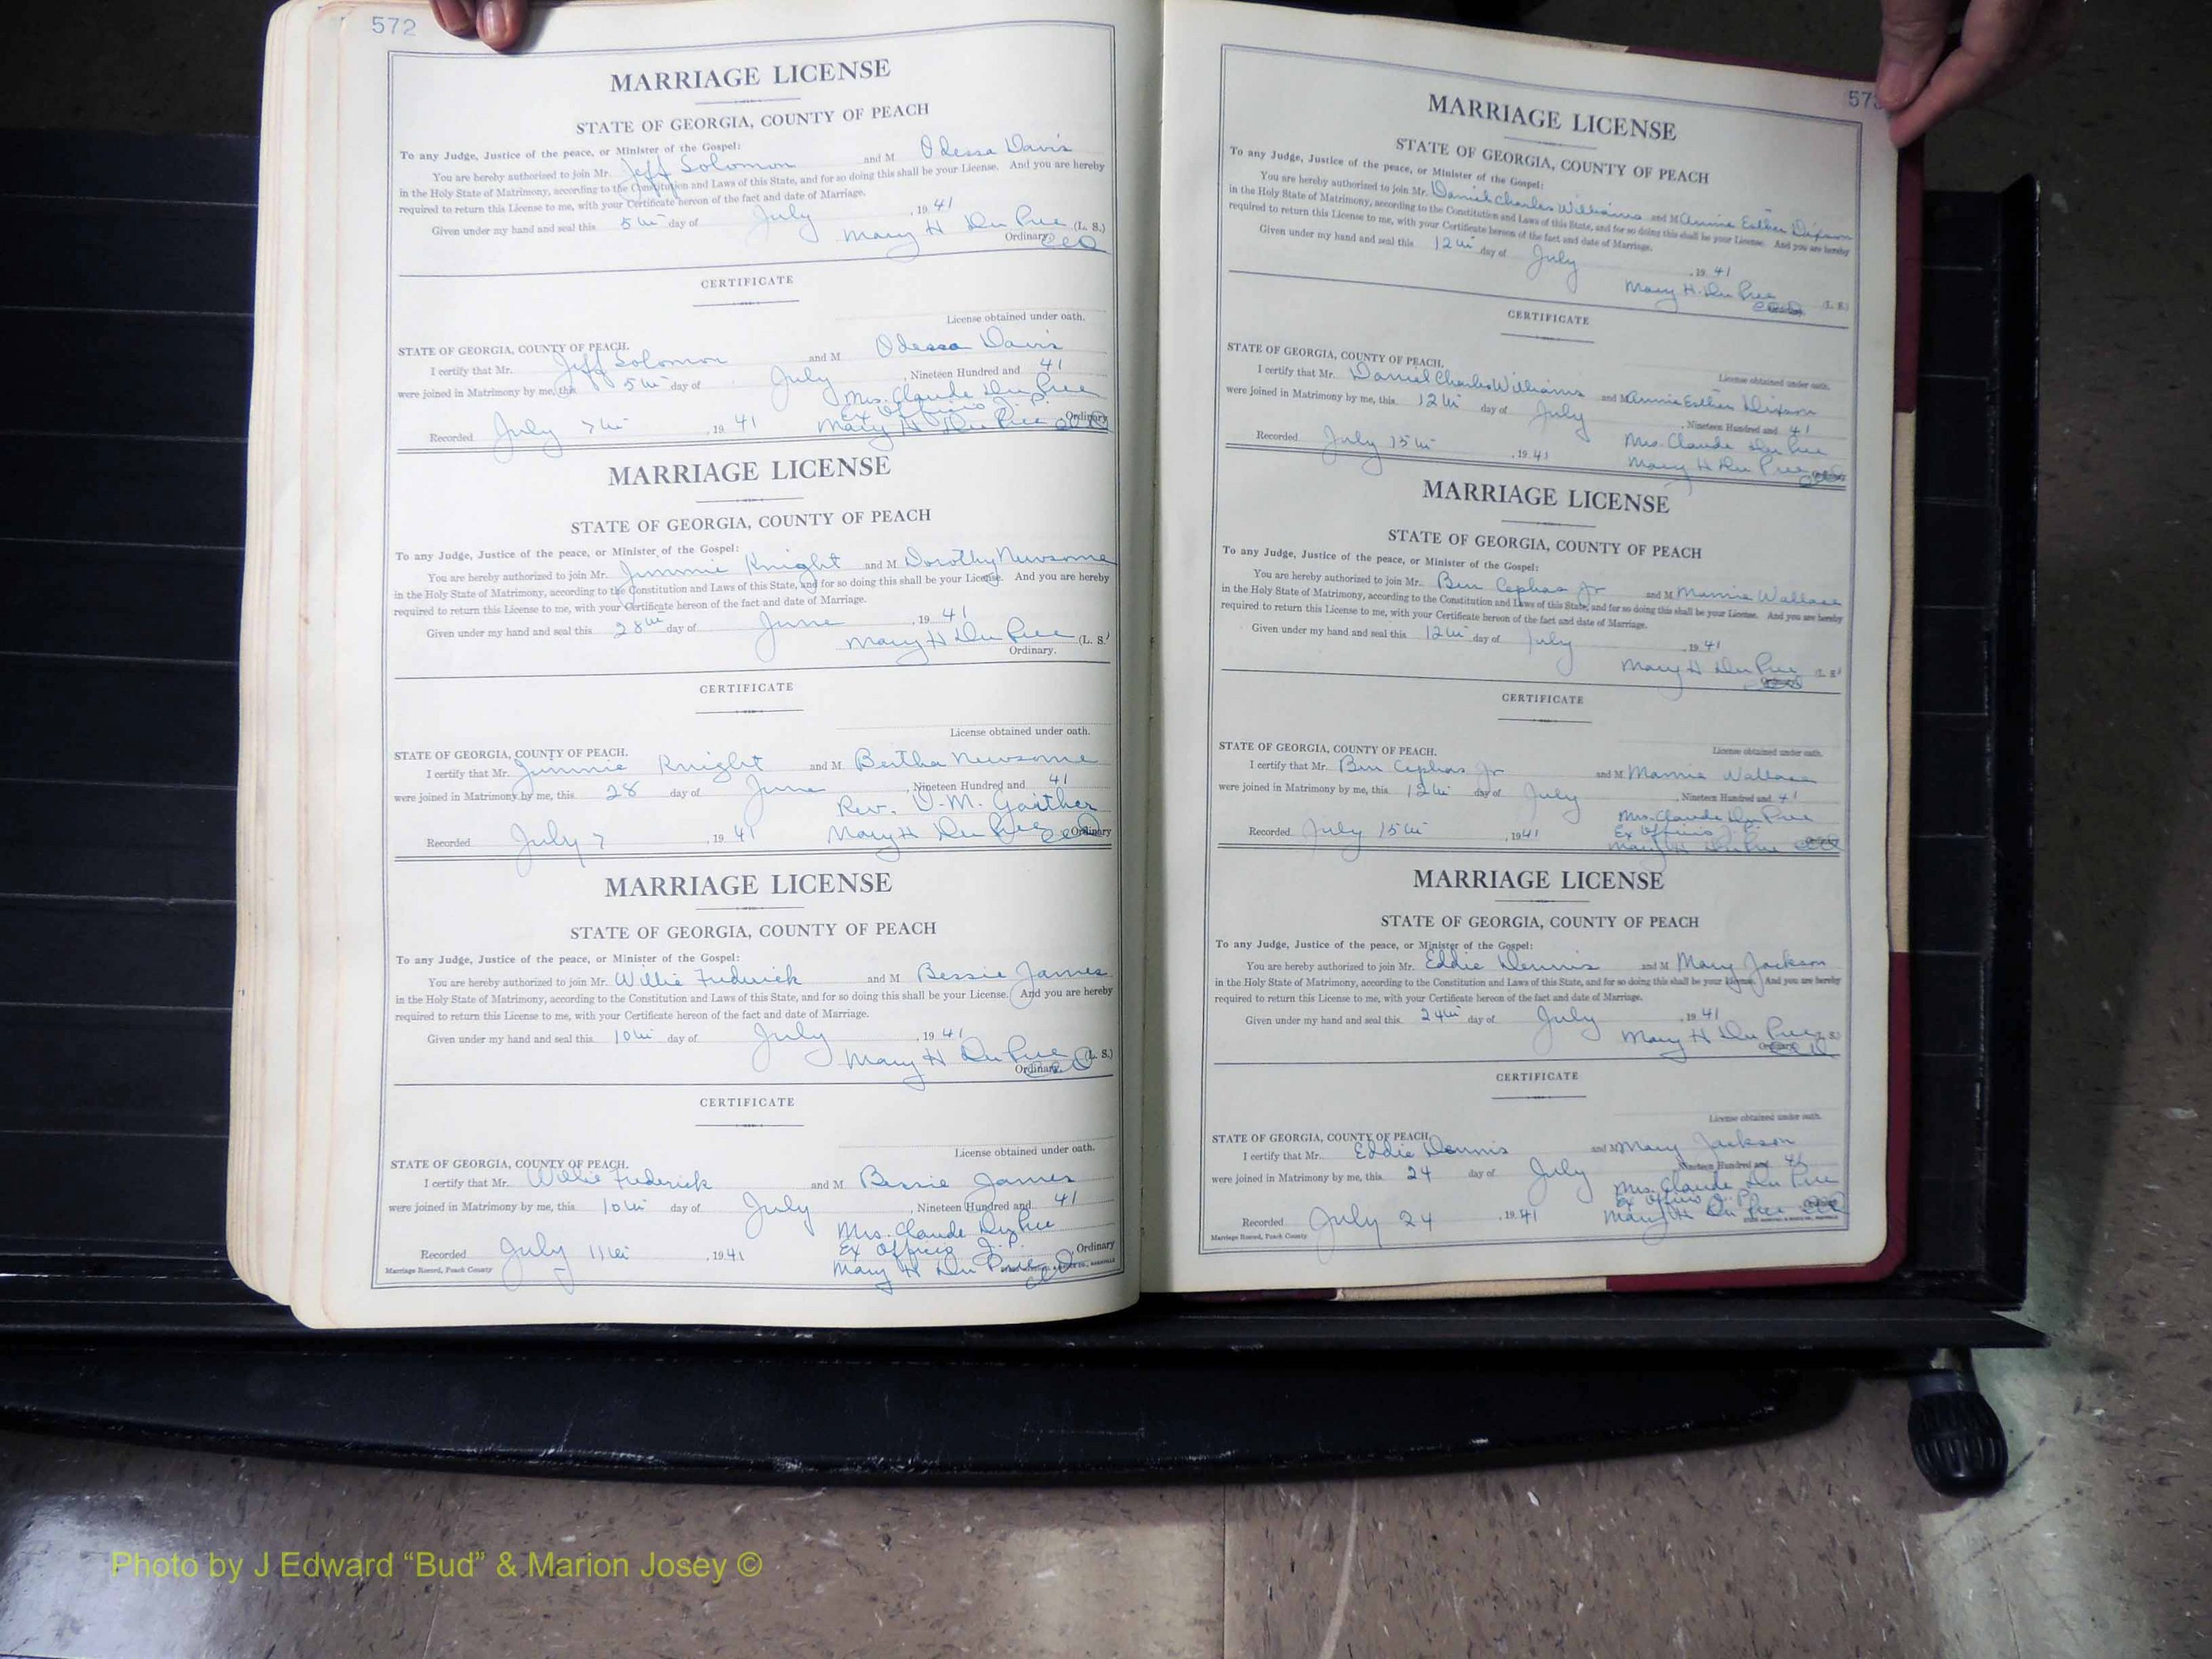 572
MARRIAGE LICENSE
STATE OF GEORGIA, COUNTY OF PEACH
To any Judge, Justice of the peace, or Minister of the Gospel:
You are hereby authorized to join Mr. Jeff Solomon and M Odessa Davis
in the Holy State of Matrimony, according to the Constitution and Laws of this State, and for so doing this shall be your License. And you are hereby
required to return this License to me, with your Certificate hereon of the fact and date of Marriage.
Given under my hand and seal this 5th day of July, 1941
Mary H Du Pree (L. S.)
Ordinary
CERTIFICATE
License obtained under oath.
STATE OF GEORGIA, COUNTY OF PEACH.
I certify that Mr. Jeff Solomon and M Odessa Davis
were joined in Matrimony by me, this 5th day of July, Nineteen Hundred and 41
Mrs. Claude Du Pree
Ex Officio J. P.
Recorded July 7th, 1941 Mary H Du Pree Ordinary
MARRIAGE LICENSE
STATE OF GEORGIA, COUNTY OF PEACH
To any Judge, Justice of the peace, or Minister of the Gospel:
You are hereby authorized to join Mr. Jimmie Knight and M Dorothy Newsome
in the Holy State of Matrimony, according to the Constitution and Laws of this State, and for so doing this shall be your License. And you are hereby
required to return this License to me, with your Certificate hereon of the fact and date of Marriage.
Given under my hand and seal this 28th day of June, 1941
Mary H Du Pree (L. S.)
Ordinary.
CERTIFICATE
License obtained under oath.
STATE OF GEORGIA, COUNTY OF PEACH.
I certify that Mr. Jimmie Knight and M Bertha Newsome
were joined in Matrimony by me, this 28 day of June, Nineteen Hundred and 41
Rev. V. M. Gaither
Recorded July 7, 1941 Mary H Du Pree Ordinary
MARRIAGE LICENSE
STATE OF GEORGIA, COUNTY OF PEACH
To any Judge, Justice of the peace, or Minister of the Gospel:
You are hereby authorized to join Mr. Willie Frederick and M Bessie James
in the Holy State of Matrimony, according to the Constitution and Laws of this State, and for so doing this shall be your License. And you are hereby
required to return this License to me, with your Certificate hereon of the fact and date of Marriage.
Given under my hand and seal this 10th day of July, 1941
Mary H Du Pree (L. S.)
Ordinary.
CERTIFICATE
License obtained under oath.
STATE OF GEORGIA, COUNTY OF PEACH.
I certify that Mr. Willie Frederick and M Bessie James
were joined in Matrimony by me, this 10th day of July, Nineteen Hundred and 41
Mrs. Claude Du Pree
Ex Officio J. P.
Recorded July 11th, 1941 Ordinary
Mary H Du Pree
Marriage Record, Peach County
57
MARRIAGE LICENSE
STATE OF GEORGIA, COUNTY OF PEACH
To any Judge, Justice of the peace, or Minister of the Gospel:
You are hereby authorized to join Mr. Daniel Charles Williams and M Annie Esther Dixson
in the Holy State of Matrimony, according to the Constitution and Laws of this State, and for so doing this shall be your License. And you are hereby
required to return this License to me, with your Certificate hereon of the fact and date of Marriage.
Given under my hand and seal this 12th day of July, 1941
Mary H. Du Pree (L. S.)
CERTIFICATE
License obtained under oath.
STATE OF GEORGIA, COUNTY OF PEACH.
I certify that Mr. Daniel Charles Williams and M Annie Esther Dixson
were joined in Matrimony by me, this 12th day of July, Nineteen Hundred and 41
Mrs. Claude Du Pree
Recorded July 15th, 1941 Mary H Du Pree
MARRIAGE LICENSE
STATE OF GEORGIA, COUNTY OF PEACH
To any Judge, Justice of the peace, or Minister of the Gospel:
You are hereby authorized to join Mr. Ben Cephas Jr and M Mamie Wallace
in the Holy State of Matrimony, according to the Constitution and Laws of this State, and for so doing this shall be your License. And you are hereby
required to return this License to me, with your Certificate hereon of the fact and date of Marriage.
Given under my hand and seal this 12th day of July, 1941
Mary H Du Pree (L. S.)
CERTIFICATE
License obtained under oath.
STATE OF GEORGIA, COUNTY OF PEACH.
I certify that Mr. Ben Cephas Jr and M Mamie Wallace
were joined in Matrimony by me, this 12th day of July, Nineteen Hundred and 41
Mrs. Claude Du Pree
Ex Officio J. P.
Recorded July 15th, 1941 Mary H Du Pree
MARRIAGE LICENSE
STATE OF GEORGIA, COUNTY OF PEACH
To any Judge, Justice of the peace, or Minister of the Gospel:
You are hereby authorized to join Mr. Eddie Dennis and M Mary Jackson
in the Holy State of Matrimony, according to the Constitution and Laws of this State, and for so doing this shall be your License. And you are hereby
required to return this License to me, with your Certificate hereon of the fact and date of Marriage.
Given under my hand and seal this 24th day of July, 1941
Mary H Du Pree (L. S.)
CERTIFICATE
License obtained under oath.
STATE OF GEORGIA, COUNTY OF PEACH.
I certify that Mr. Eddie Dennis and M Mary Jackson
were joined in Matrimony by me, this 24 day of July Nineteen Hundred and 41
Mrs. Claude Du Pree
Ex Officio J. P.
Recorded July 24, 1941 Mary H Du Pree
Marriage Record, Peach County
Photo by J Edward “Bud” & Marion Josey ©